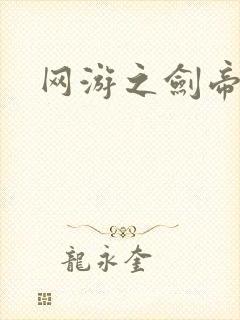 网游之劍帝
龍永奎